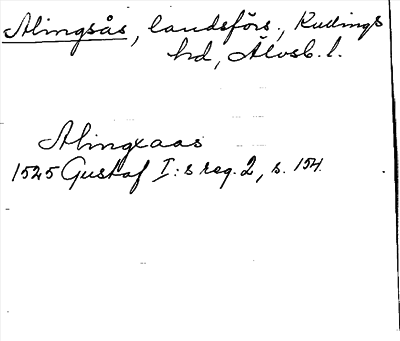 Alingsås, landsförs., Kullings
hd, Älvsb. l.
Alingxaas
1525 Gustaf I:s reg. 2, s. 154.